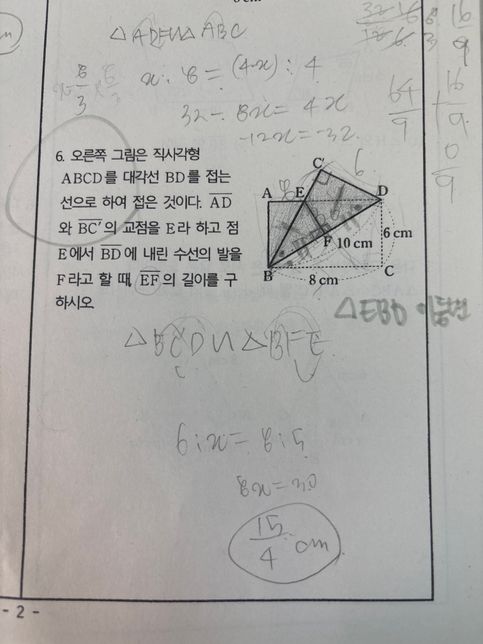 △ADE∽△ABC
x : 8 = (4-x) : 4
32 - 8x = 4x
-12x = -32
64/9 + 16/9
6. 오른쪽 그림은 직사각형
ABCD를 대각선 BD를 접는
선으로 하여 접은 것이다. AD
와 BC'의 교점을 E라 하고 점
E에서 BD에 내린 수선의 발을
F라고 할 때, EF의 길이를 구
하시오
C'
6
A
8
E
D
F
10 cm
6 cm
B
8 cm
C
△EBD 이등변
△BC'D∽△BFE
6 : x = 8 : 5
8x = 30
15/4 cm
- 2 -